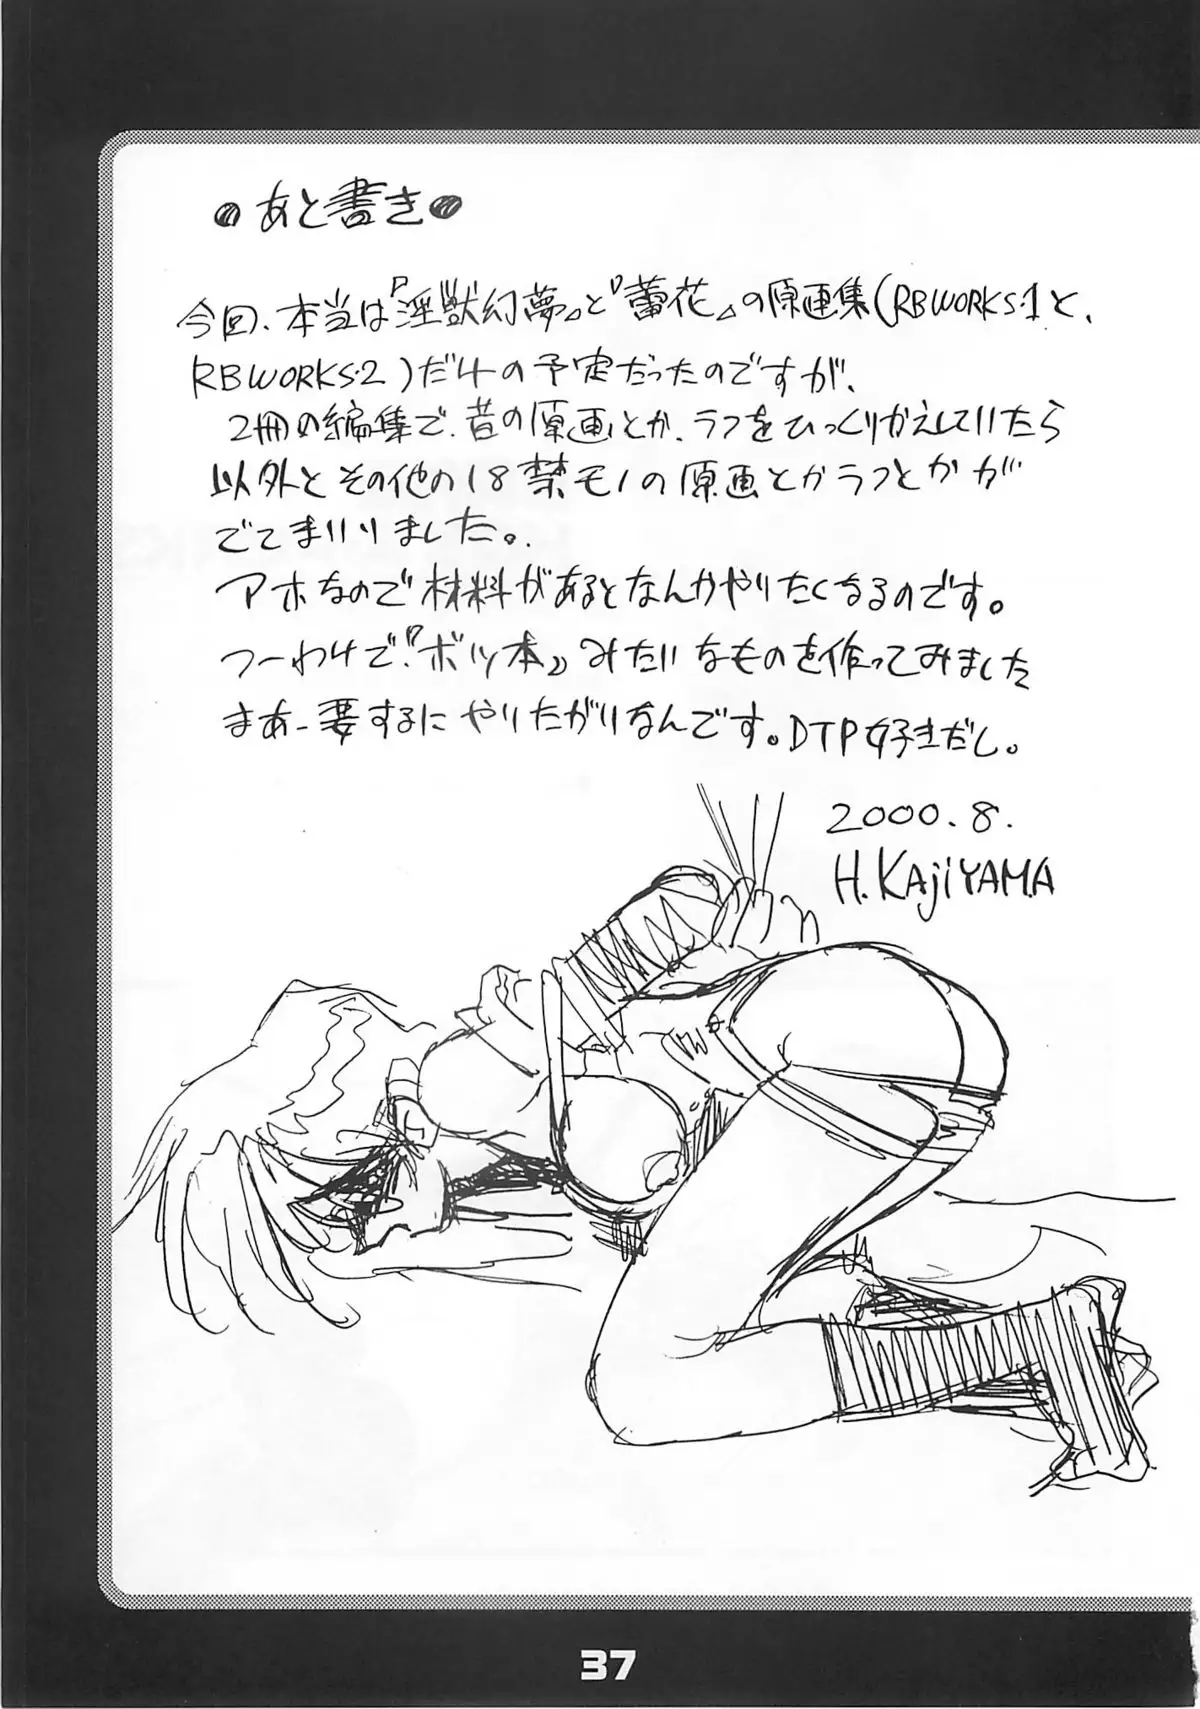 ●あと書き●
今回、本当は『淫獣幻夢』と『蕾花』の原画集(RBWORKS:1と、
RBWORKS:2)だけの予定だったのですが、
2冊の編集で、昔の原画とか、ラフをひっくりかえしていたら
以外とその他の18禁モノの原画とかラフとかが
でてまいりました。
アホなので材料があるとなんかやりたくなるのです。
つーわけで『ボツ本』みたいなものを作ってみました
まあー要するにやりたがりなんです。DTP好きだし。
2000.8.
H.KAjiYAMA
37